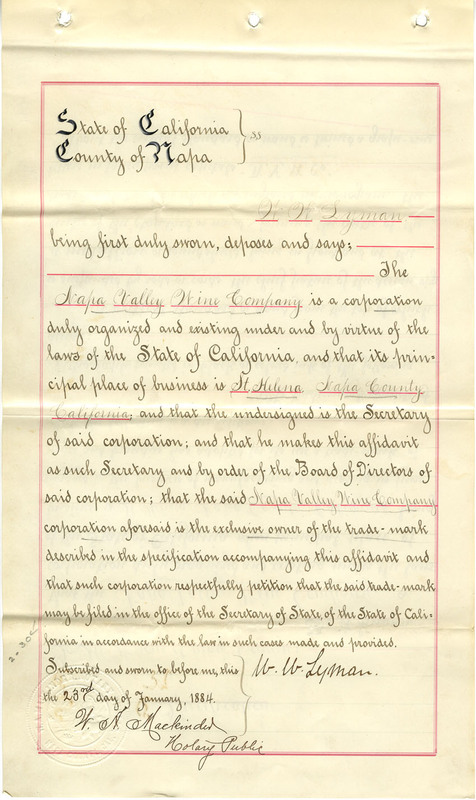 State of California } ss
County of Napa
W. W. Lyman
being first duly sworn, deposes and says;
The
Napa Valley Wine Company is a corporation
duly organized and existing under and by virtue of the
laws of the State of California, and that its prin=
cipal place of business is St Helena Napa County
California; and that the undersigned is the Secretary
of said corporation; and that he makes this affidavit
as such Secretary and by order of the Board of Directors of
said corporation; that the said Napa Valley Wine Company
corporation aforesaid is the exclusive owner of the trade-mark
described in the specification accompanying this affidavit and
that such corporation respectfully petition that the said trade-mark
may be filed in the office of the Secretary of State, of the State of Cali-
fornia in accordance with the law in such cases made and provided.
Subscribed and sworn to before me, this
the 23rd day of January, 1884.
W. A. Mackinder
Notary Public
W. W. Lyman.